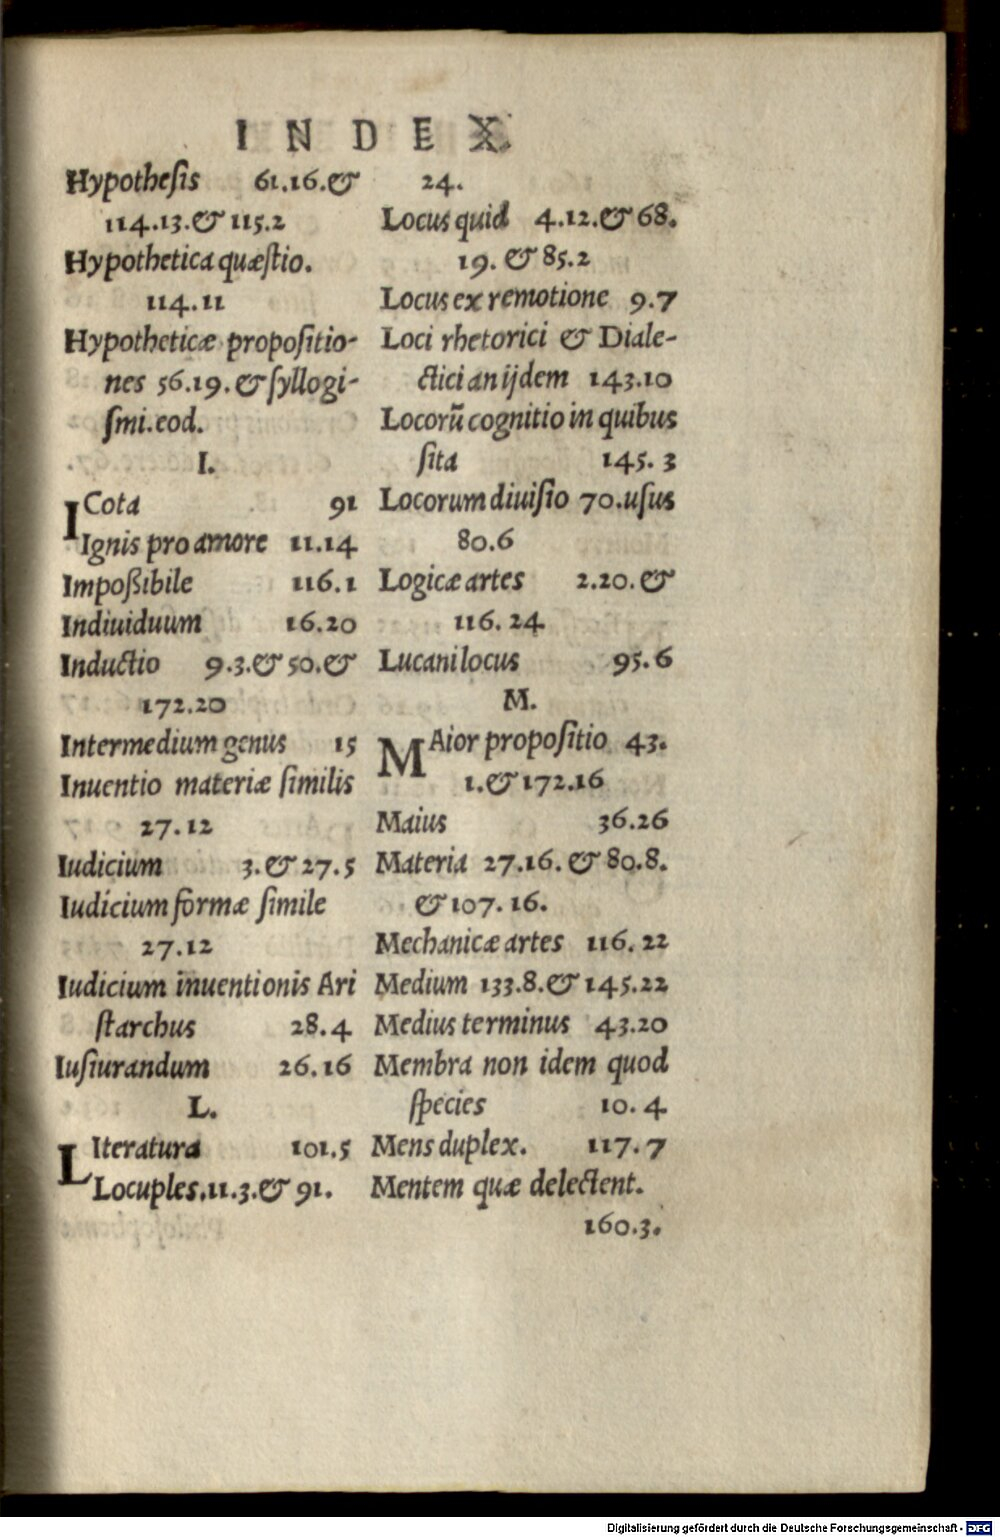 INDEX.
Hypothesis 61.16.&
114.13.& 115.2
Hypothetica quæstio.
114.11
Hypotheticæ propositio-
nes 56.19.& syllogi-
smi.eod.
I.
ICota 91
Ignis pro amore 11.14
Impoßibile 116.1
Indiuiduum 16.20
Inductio 9.3.& 50.&
172.20
Intermedium genus 15
Inuentio materiæ similis
27.12
Iudicium 3.& 27.5
Iudicium formæ simile
27.12
Iudicium inuentionis Ari
starchus 28.4
Iusiurandum 26.16
L.
LIteratura 101.5
Locuples.11.3.& 91.
24.
Locus quid 4.12.& 68.
19. & 85.2
Locus ex remotione 9.7
Loci rhetorici & Diale-
ctici an ijdem 143.10
Locorũ cognitio in quibus
sita 145.3
Locorum diuisio 70.usus
80.6
Logicæ artes 2.20.&
116.24
Lucani locus 95.6
M.
MAior propositio 43.
1.& 172.16
Maius 36.26
Materia 27.16.& 80.8.
& 107.16.
Mechanicæ artes 116.22
Medium 133.8.& 145.22
Medius terminus 43.20
Membra non idem quod
species 10.4
Mens duplex. 117.7
Mentem quæ delectent.
160.3.
Digitalisierung gefördert durch die Deutsche Forschungsgemeinschaft - DFG